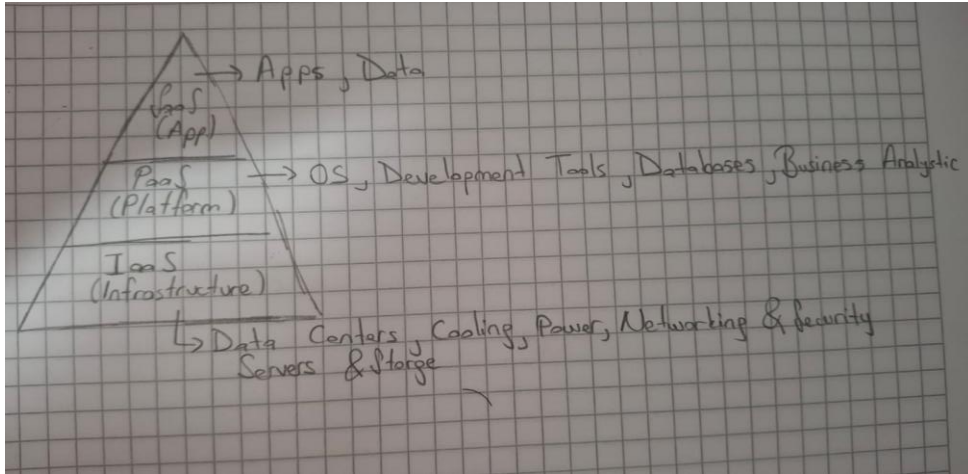 → Apps, Data
SaaS
(App)
PaaS → OS, Development Tools, Databases, Business Analystic
(Platform)
IaaS
(Infrastructure)
↳ Data Centers, Cooling, Power, Networking & Security
Servers & Storge